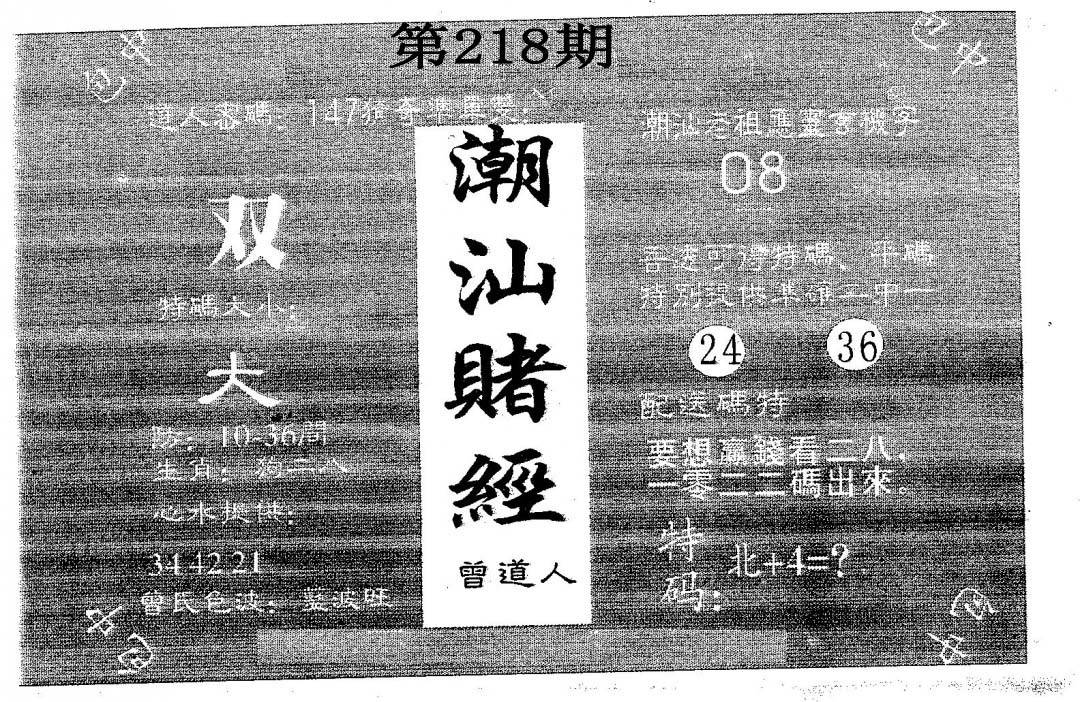 第218期
道人密碼：147獨奇準單雙：
双
特碼大小：
大
防：10-36間
生肖：狗二八
心水提供：
34.42.21
曾氏色波：藍波旺
潮汕賭經
曾道人
潮汕老祖應靈會機字
08
吾迷可博特碼、平碼
特別提供準確二中一
24 36
配送碼特
要想贏錢看二八.
一零二二碼出來。
特码：
北+4=?